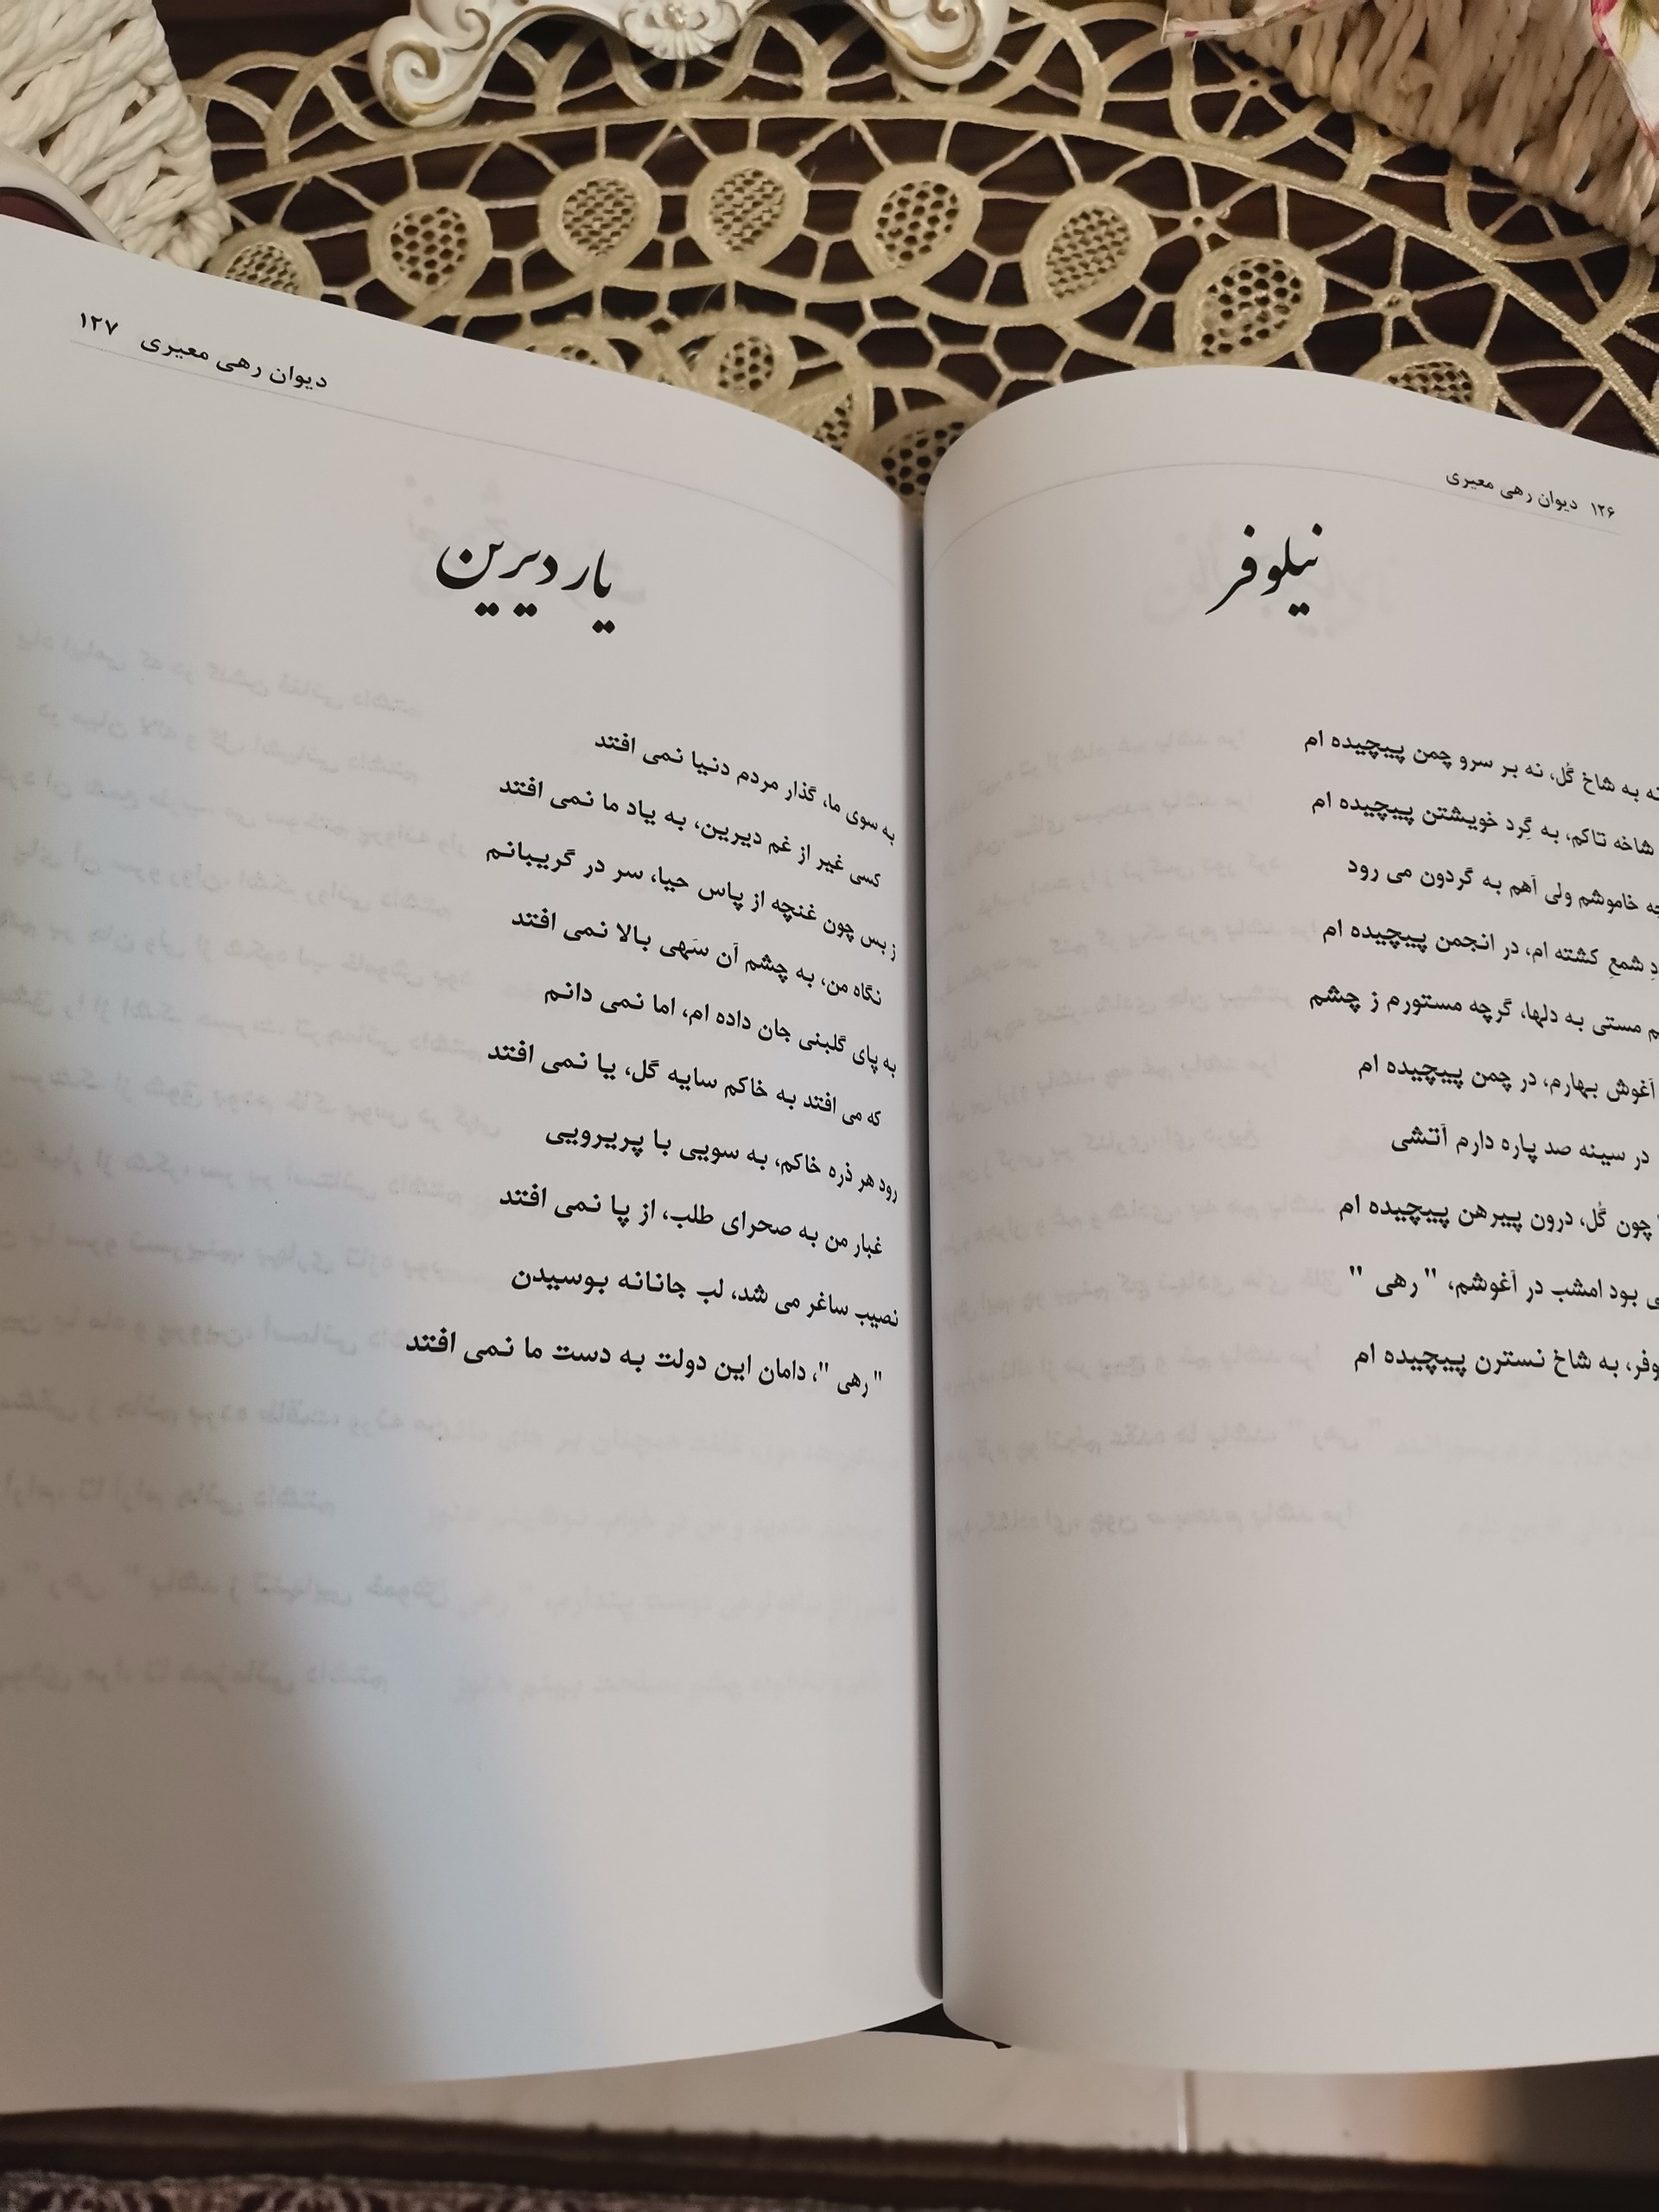 ۱۲۶ دیوان رهی معیری
نیلوفر
نه به شاخ گُل، نه بر سرو چمن پیچیده ام
شاخه تاکم، به گِرد خویشتن پیچیده ام
خاموشم ولی آهم به گردون می رود
شمعِ کشته ام، در انجمن پیچیده ام
مستی به دلها، گرچه مستورم ز چشم
آغوش بهارم، در چمن پیچیده ام
در سینه صد پاره دارم آتشی
چون گُل، درون پیرهن پیچیده ام
بود امشب در آغوشم، "رهی"
به شاخ نسترن پیچیده ام
دیوان رهی معیری ۱۲۷
یار دیرین
به سوی ما، گذار مردم دنیا نمی افتد
کسی غیر از غم دیرین، به یاد ما نمی افتد
ز بس چون غنچه از پاس حیا، سر در گریبانم
نگاه من، به چشم آن سَهی بالا نمی افتد
به پای گلبنی جان داده ام، اما نمی دانم
که می افتد به خاکم سایه گل، یا نمی افتد
رود هر ذره خاکم، به سویی با پریرویی
غبار من به صحرای طلب، از پا نمی افتد
نصیب ساغر می شد، لب جانانه بوسیدن
"رهی"، دامان این دولت به دست ما نمی افتد